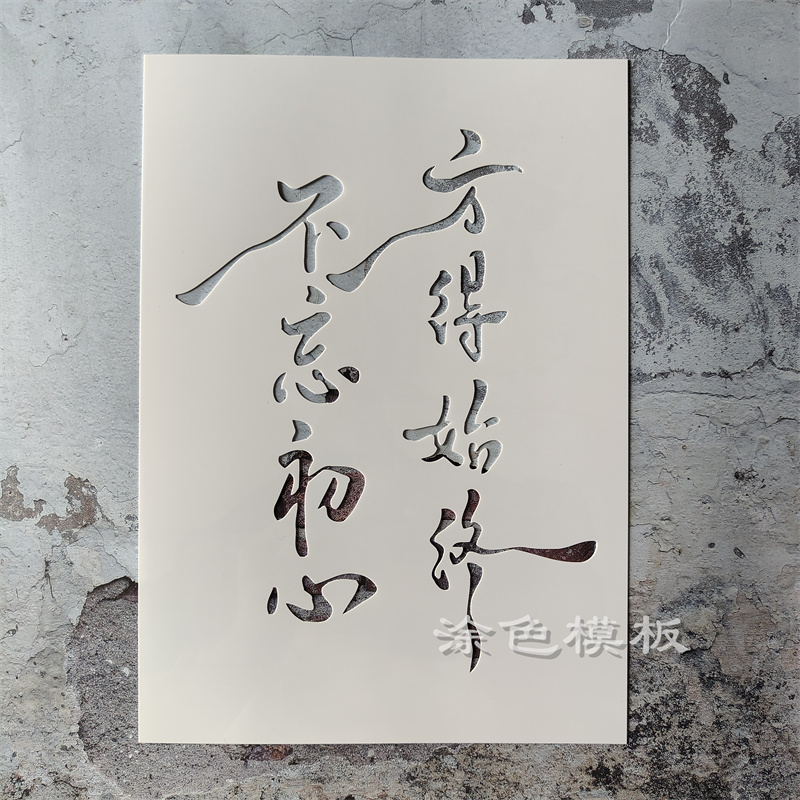 不忘初心
方得始终
涂色模板